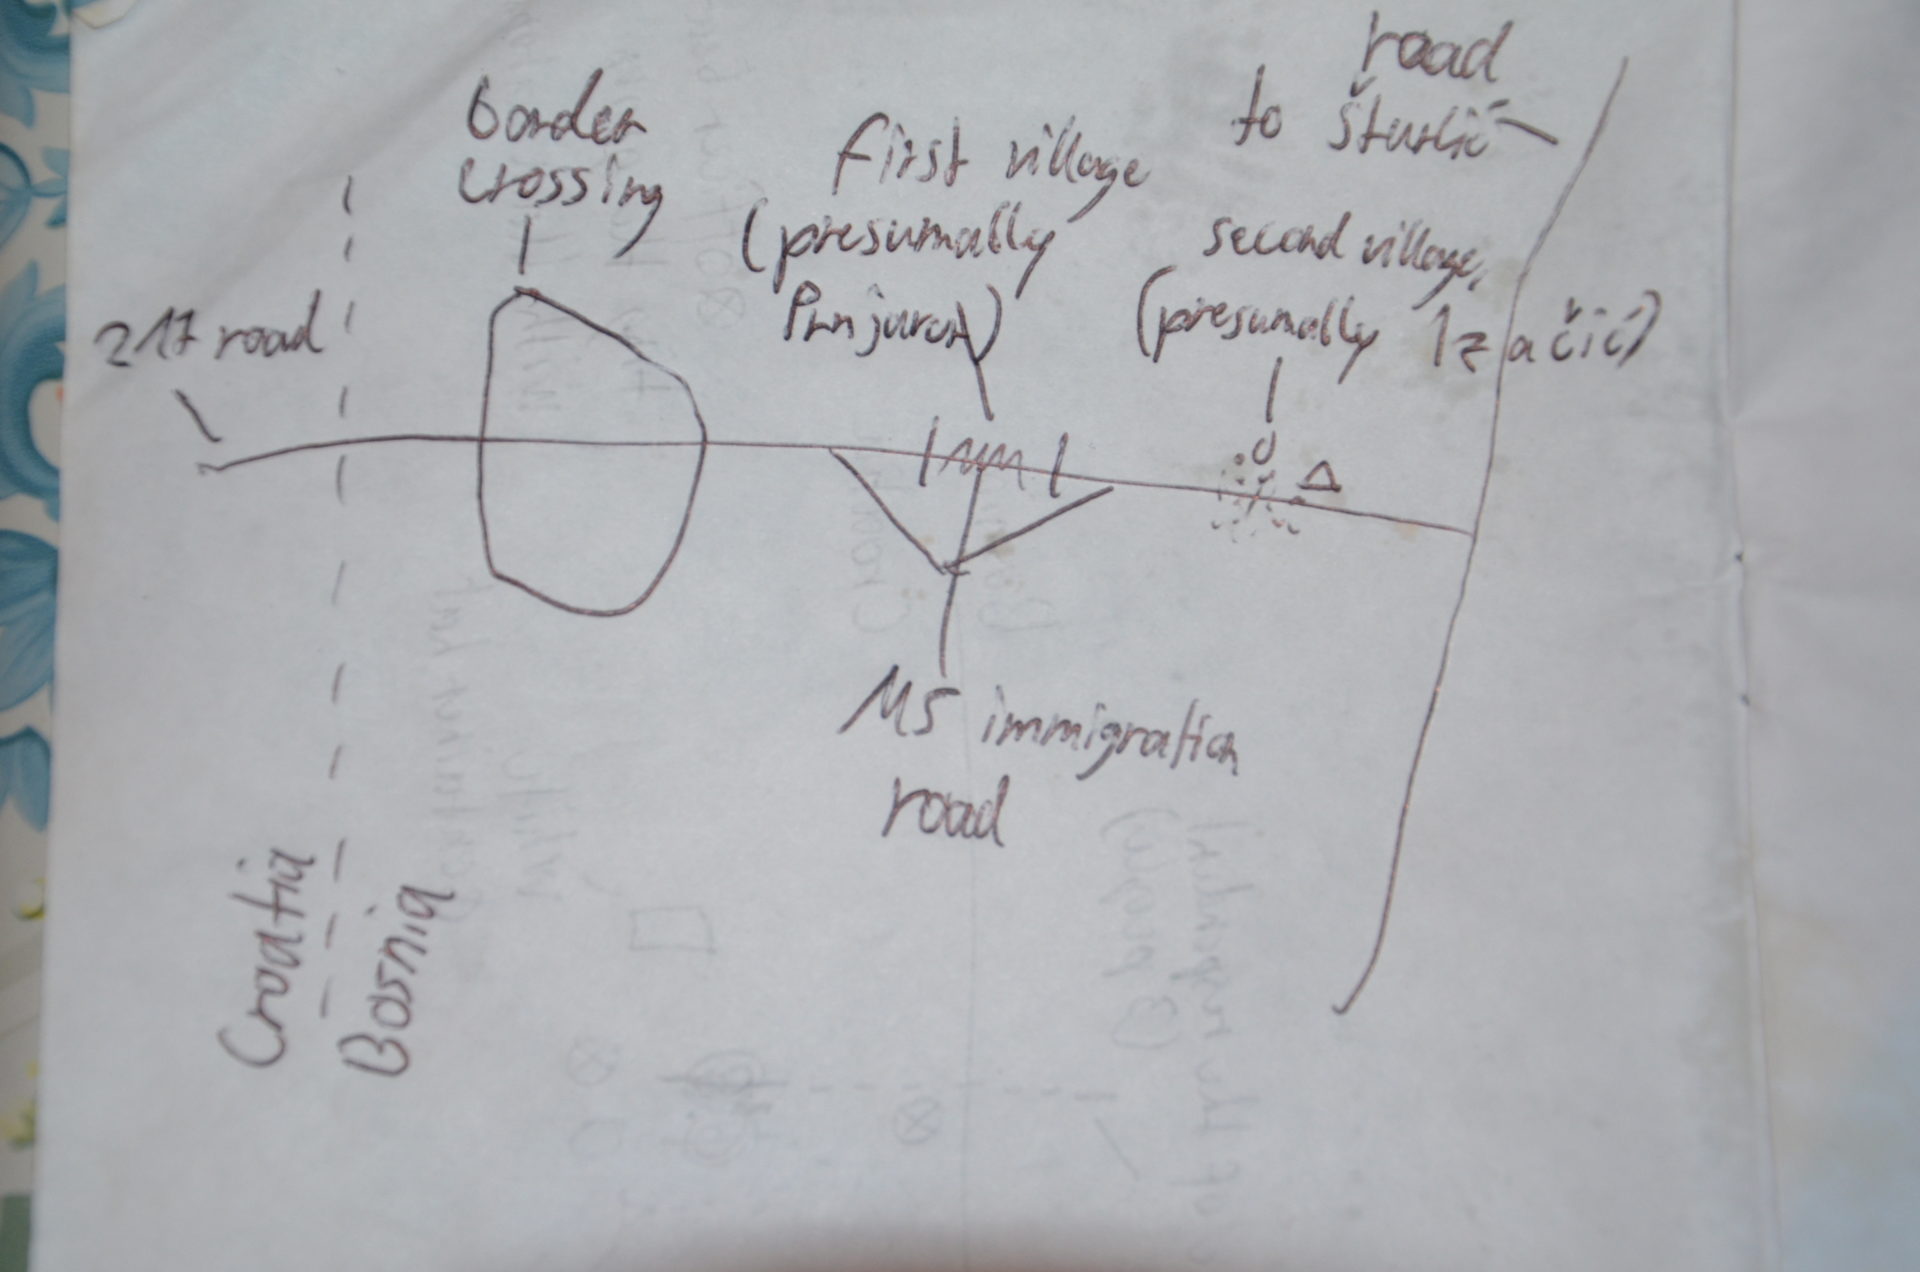 road
to Šturlić
border
crossing
first village
(presumally
Prnjurod)
second village,
(presumally Izačić)
217 road
M5 immigration
road
Croatia
Bosnia